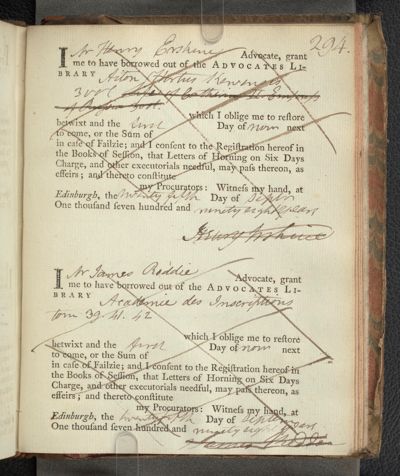 294.
I Mr Henry Erskine Advocate, grant
me to have borrowed out of the ADVOCATES LI-
BRARY Aiton Hortus Kewensis
3 vols Life of Catherine II. Empress
of Russia 3 vol.
which I oblige me to reſtore
betwixt and the first Day of Novm next
to come, or the Sum of
in caſe of Failzie; and I conſent to the Regiſtration hereof in
the Books of Seſſion, that Letters of Horning on Six Days
Charge, and other executorials needful, may paſs thereon, as
effeirs; and thereto conſtitute
my Procurators: Witneſs my hand, at
Edinburgh, the twenty fifth Day of Septr
One thouſand ſeven hundred and ninety eight years
Henry Erskine
I Mr James Reddie Advocate, grant
me to have borrowed out of the ADVOCATES LI-
BRARY Academie des Inscriptions
tom 39. 41. 42
which I oblige me to reſtore
betwixt and the first Day of Novm next
to come, or the Sum of
in caſe of Failzie; and I conſent to the Regiſtration hereof in
the Books of Seſſion, that Letters of Horning on Six Days
Charge, and other executorials needful, may paſs thereon, as
effeirs; and thereto conſtitute
my Procurators: Witneſs my hand, at
Edinburgh, the twenty fifth Day of September
One thouſand ſeven hundred and ninety eight years
James Reddie